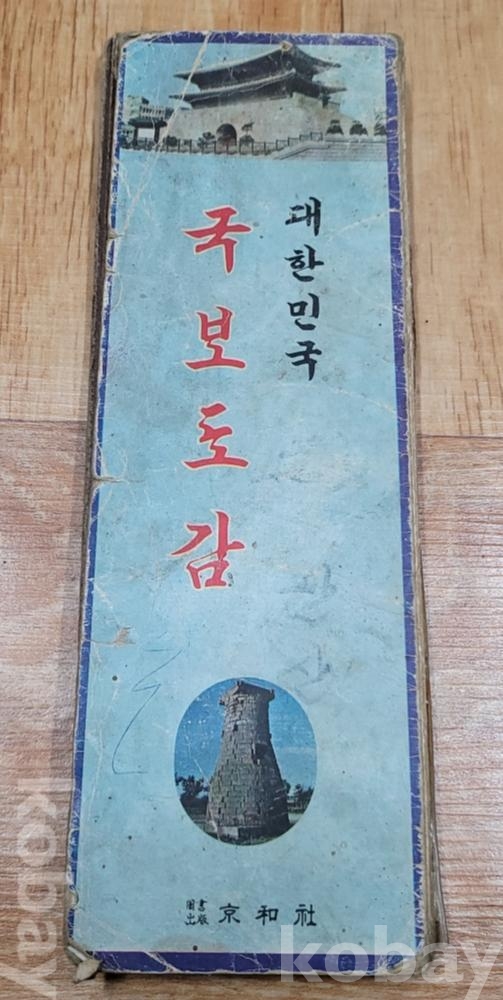 대한민국
국보도감
圖書出版 京和社
kobay
kobay